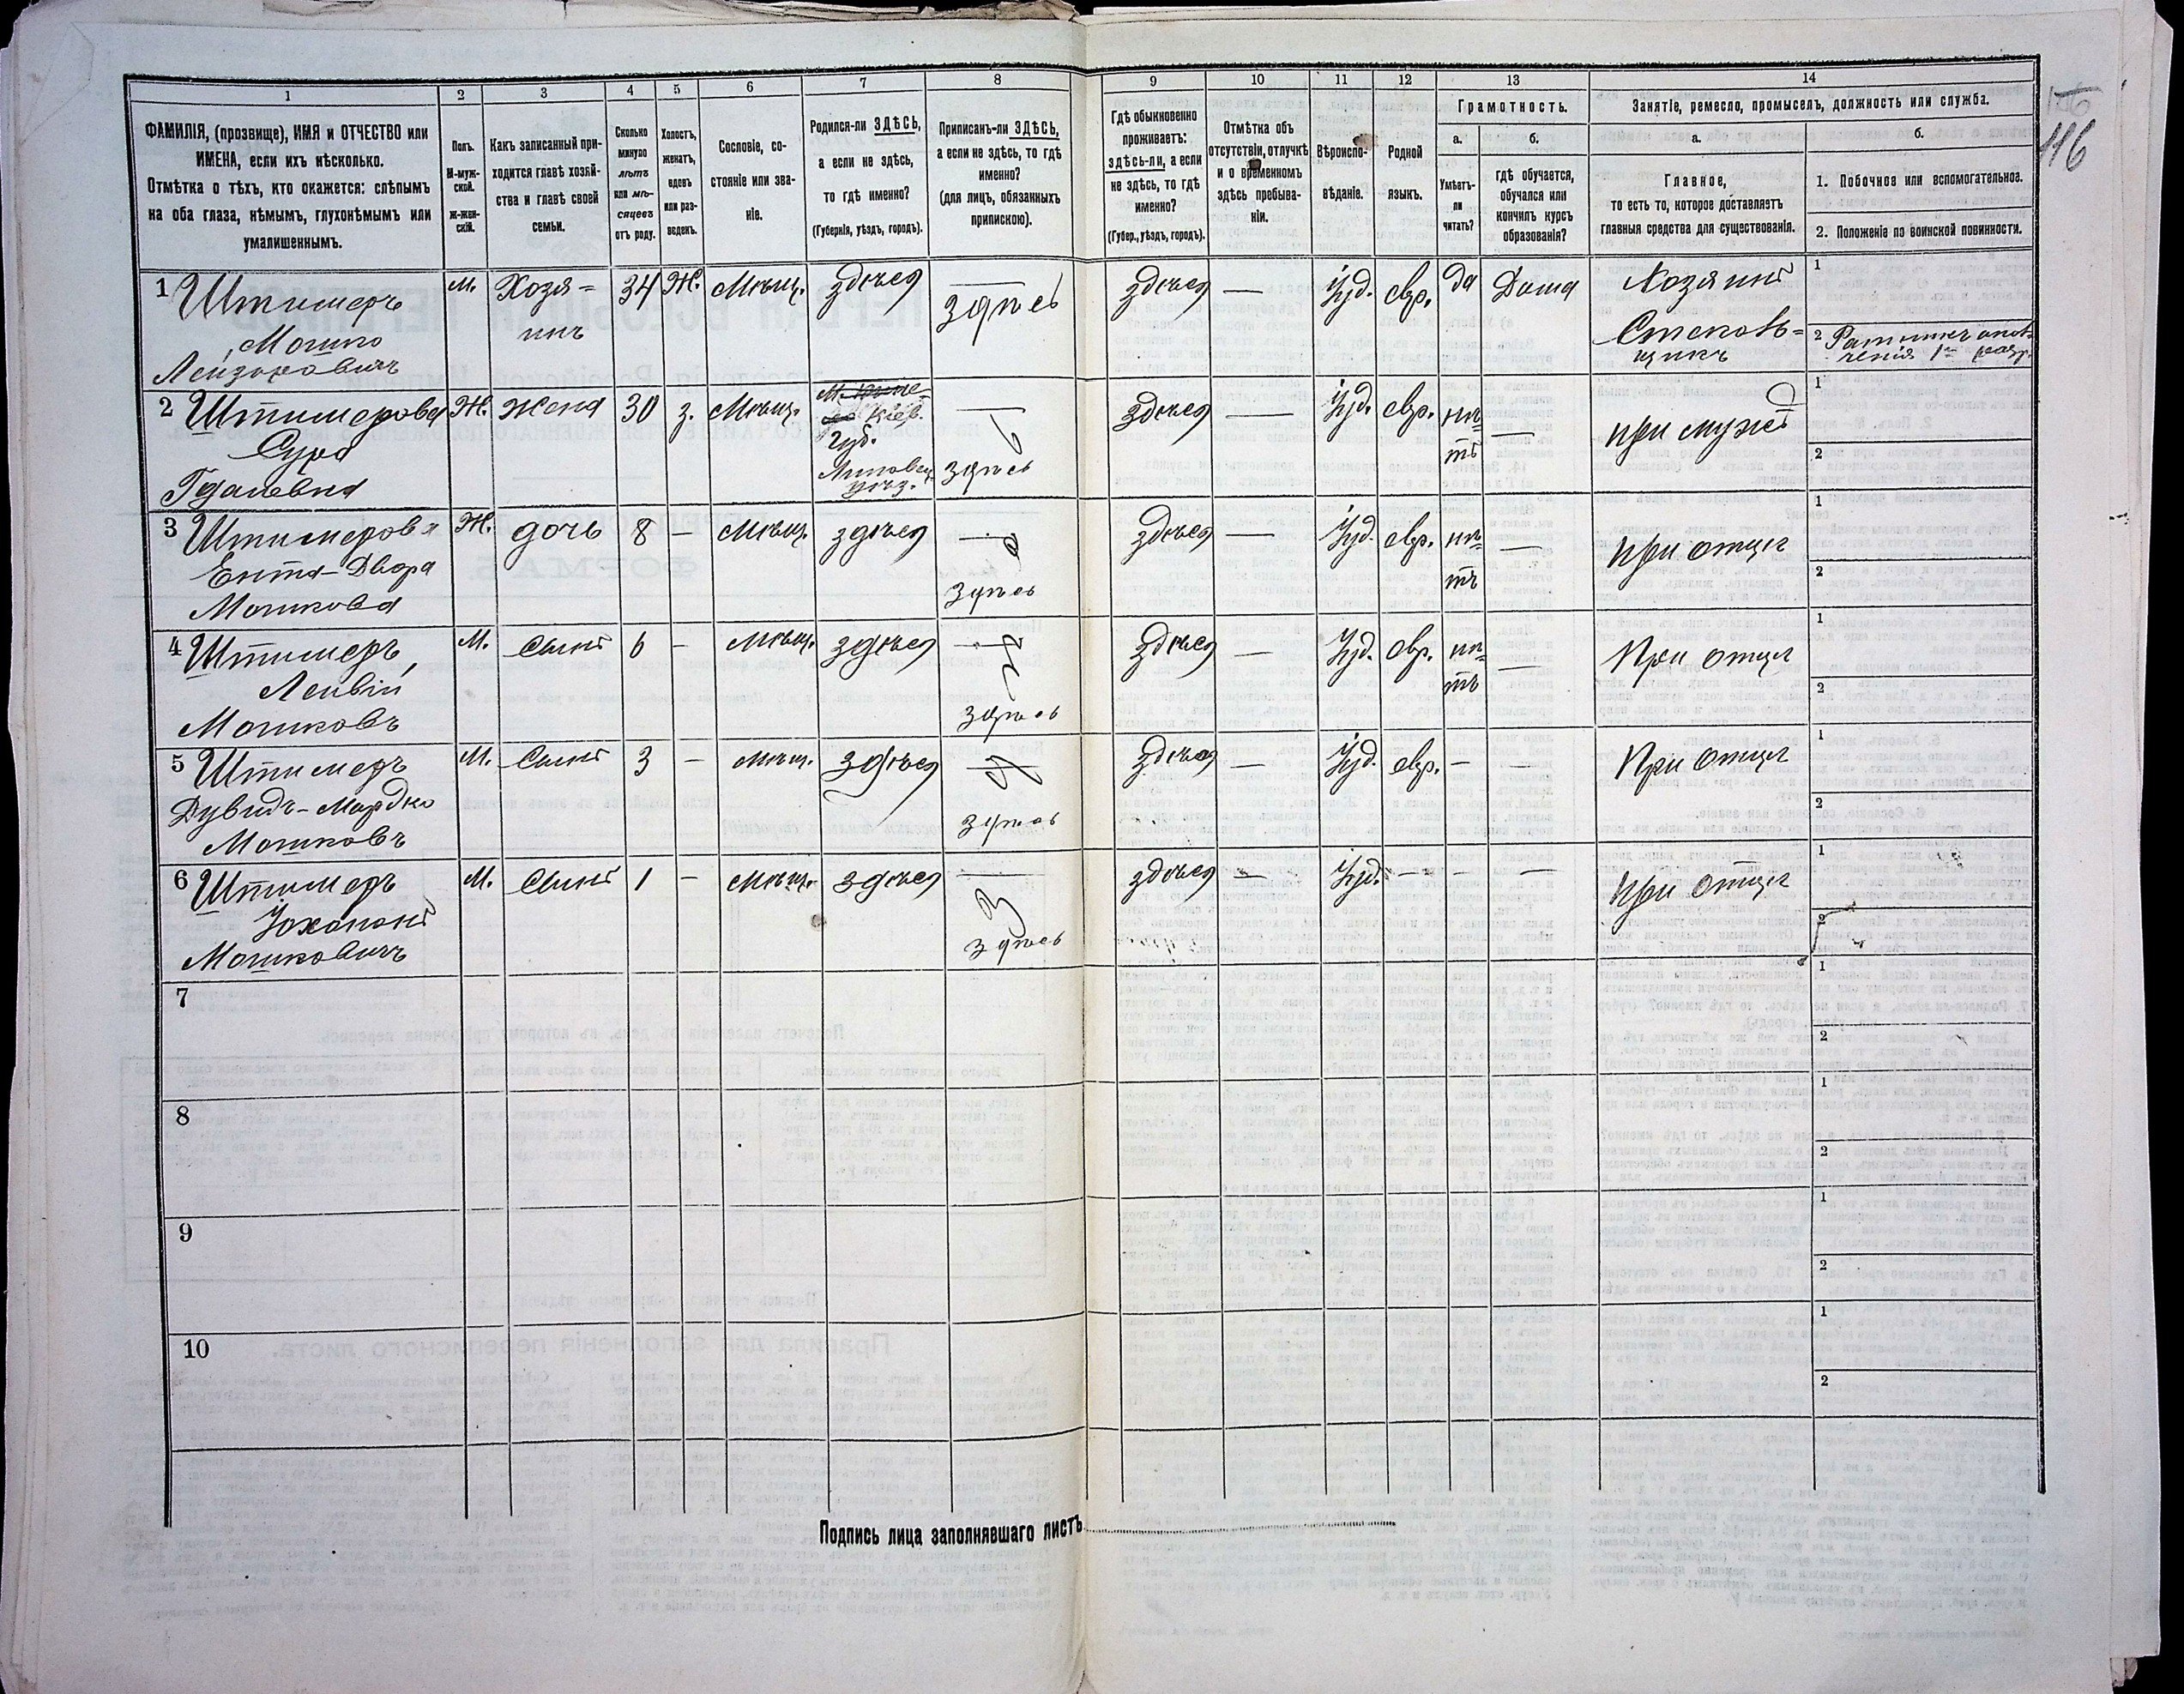 1 2 3 4 5 6 7 8 9 10 11 12 13 14
ФАМИЛІЯ, (прозвище), ИМЯ и ОТЧЕСТВО или
ИМЕНА, если ихъ нѣсколько.
Отмѣтка о тѣхъ, кто окажется: слѣпымъ
на оба глаза, нѣмымъ, глухонѣмымъ или
умалишеннымъ.
Полъ.
М-муж-
ской.
Ж-жен-
скій.
Какъ записанный при-
ходится главѣ хозяй-
ства и главѣ своей
семьи.
Сколько
минуло
лѣтъ
или мѣ-
сяцевъ
отъ роду.
Холостъ,
женатъ,
вдовъ
или раз-
веденъ.
Сословіе, со-
стояніе или зва-
ніе.
Родился-ли ЗДѢСЬ,
а если не здѣсь,
то гдѣ именно?
(Губернія, уѣздъ, городъ).
Приписанъ-ли ЗДѢСЬ,
а если не здѣсь, то гдѣ
именно?
(для лицъ, обязанныхъ
припискою).
Гдѣ обыкновенно
проживаетъ:
здѣсь-ли, а если
не здѣсь, то гдѣ
именно?
(Губер., уѣздъ, городъ).
Отмѣтка объ
отсутствіи, отлучкѣ
и о временномъ
здѣсь пребыва-
ніи.
Вѣроиспо-
вѣданіе.
Родной
языкъ.
Грамотность.
а.
Умѣетъ-
ли
читать?
б.
гдѣ обучается,
обучался или
кончилъ курсъ
образованія?
Занятіе, ремесло, промыселъ, должность или служба.
а.
Главное,
то есть то, которое доставляетъ
главныя средства для существованія.
б.
1. Побочное или вспомогательное.
2. Положеніе по воинской повинности.
116
1 Штимеръ М. Хозя= 34 Ж. Мѣщ. здѣся — здѣсь здѣся — Іуд. евр. да Дома Хозяинъ 1
Мошко инъ Стеколь=
Лейзоровичъ щикъ 2 Ратникъ опол-
ченія 1го разр.
2 Штимерова Ж. Жена 30 з. Мѣщ. Кіев. — здѣся — Іуд. евр. нѣ= — при мужѣ 1
Сура Губ. тъ
Гдалевна Липовец. уѣз. здѣсь 2
3 Штимерова Ж. дочь 8 — Мѣщ. здѣся — здѣся — Іуд. евр. нѣ= — при отцѣ 1
Ента-Двора тъ
Мошкова здѣсь 2
4 Штимеръ М. Сынъ 6 — Мѣщ. здѣся — здѣся — Іуд. евр. нѣ= — При отцѣ 1
Лейвій тъ
Мошковъ здѣсь 2
5 Штимеръ М. Сынъ 3 — Мѣщ. здѣся — здѣся — Іуд. евр. — — При отцѣ 1
Дувидъ-Мордко
Мошковъ здѣсь 2
6 Штимеръ М. Сынъ 1 — Мѣщ. здѣся — здѣся — Іуд. — — — при отцѣ 1
Іохононъ
Мошковичъ здѣсь 2
7 1
2
8 1
2
9 1
2
10 1
2
Подпись лица заполнявшаго листъ